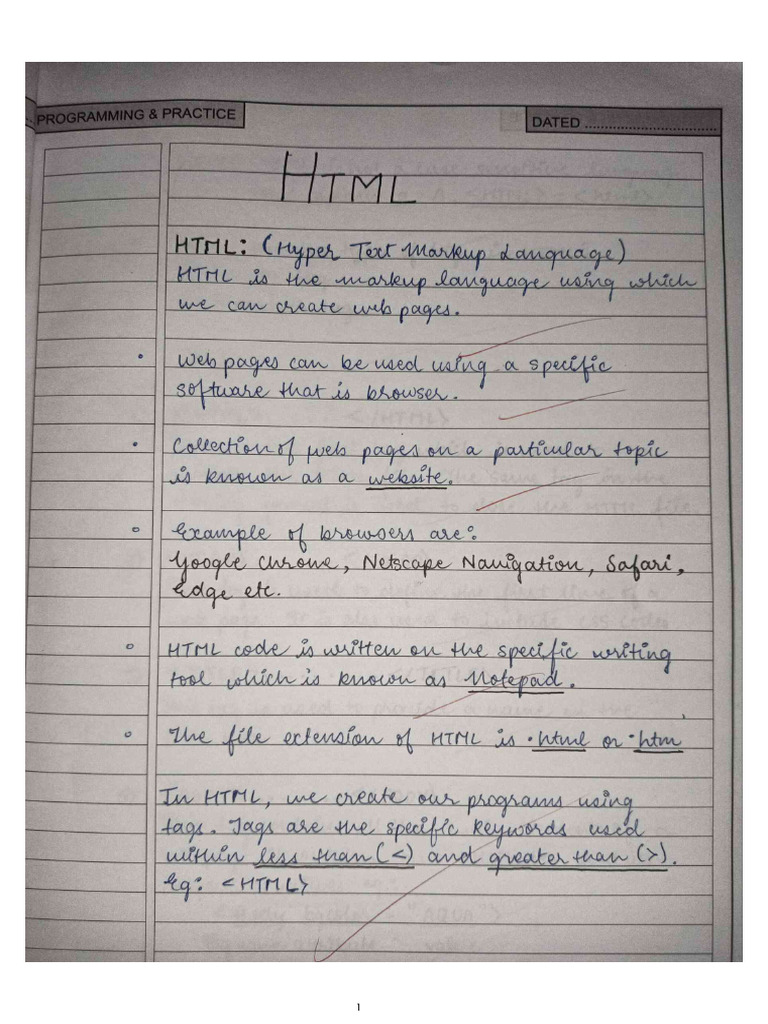 PROGRAMMING & PRACTICE
DATED ................................
HTML
HTML: (Hyper Text Markup Language)
HTML is the markup language using which
we can create web pages.
Web pages can be used using a specific
software that is browser.
Collection of web pages on a particular topic
is known as a website.
Example of browsers are:
Google Chrome, Netscape Navigation, Safari,
Edge etc.
HTML code is written on the specific writing
tool which is known as Notepad.
The file extension of HTML is .html or .htm
In HTML, we create our programs using
tags. Tags are the specific keywords used
within less than (<) and greater than (>).
Eg: <HTML>
1